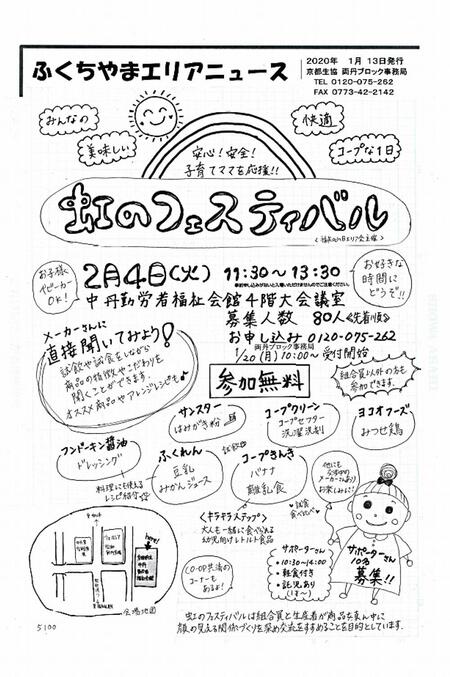 ふくちやまエリアニュース
2020年 1月 13日発行
京都生協 両丹ブロック事務局
TEL 0120-075-262
FAX 0773-42-2142
みんなの
美味しい
快適
コープな1日
安心!安全!
子育てママを応援!!
虹のフェスティバル
お子様
ベビーカー
OK!
2月4日(火) 11:30~13:30
中丹勤労者福祉会館4階大会議室
募集人数 80人<先着順>
お申し込み 0120-075-262
両丹ブロック事務局
1/20(月)10:00~受付開始
お好きな
時間に
どうぞ!!
メーカーさんに
直接聞いてみよう!
試飲や試食をしながら
商品の特徴やこだわりを
聞くことができます。
オススメ商品やアレンジレシピも♪
参加無料
組合員以外の方も
参加できます。
サンスター
はみがき粉
コープクリーン
コープセフター
洗濯洗剤
ヨコオフーズ
みつせ鶏
フンドーキン醤油
ドレッシング
料理にも使える
レシピ紹介
ふくれん
豆乳
みかんジュース
試飲
コープきんき
バナナ
離乳食
試食
食べ比べ
<キラキラステップ>
大人も一緒に食べられる
幼児向けレトルト食品
他にも
お楽しみに!
here!
会場地図
CO・OP共済の
コーナーも
あるよ!
サポーターさん
・10:30~14:00
・軽食付き
・託児あり
サポーターさん
10名
募集!!
虹のフェスティバルは組合員と生産者が商品を真ん中に
顔の見える関係づくりを深め交流をすすめることを目的としています。
5100